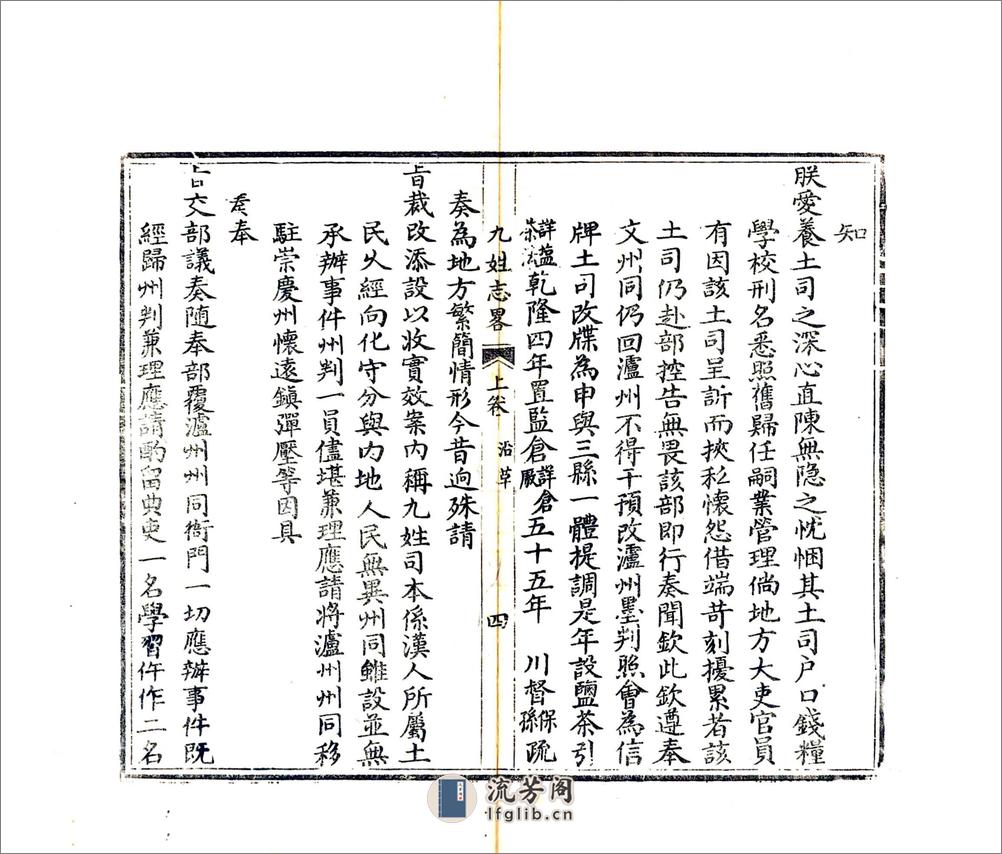 知
朕愛養土司之深心直陳無隐之忱悃其土司户口錢糧
學校刑名悉照舊歸任嗣業管理倘地方大吏官員
有因該土司呈訴而挾私懷怨借端苛刻擾累者該
土司仍赴部控告無畏該部即行奏聞欽此欽遵奉
文州同仍回瀘州不得干預改瀘州墨判照會為信
牌土司改牒為申與三縣一體提調是年設鹽茶引
詳鹽
茶法
乾隆四年置監倉
詳倉
厫
五十五年
川督
保
孫
疏
九姓志畧
上卷
沿革
四
奏為地方繁簡情形今昔逈殊請
旨裁改添設以收實效案内稱九姓司本係漢人所屬土
民久經向化守分與内地人民無異州同雖設並無
承辦事件州判一員儘堪兼理應請將瀘州州同移
駐崇慶州懷遠鎮彈壓等因具
奏奉
旨交部議奏随奉部覆瀘州州同衙門一切應辦事件既
經歸州判兼理應請酌留典吏一名學習仵作二名
流芳阁
lfglib.cn